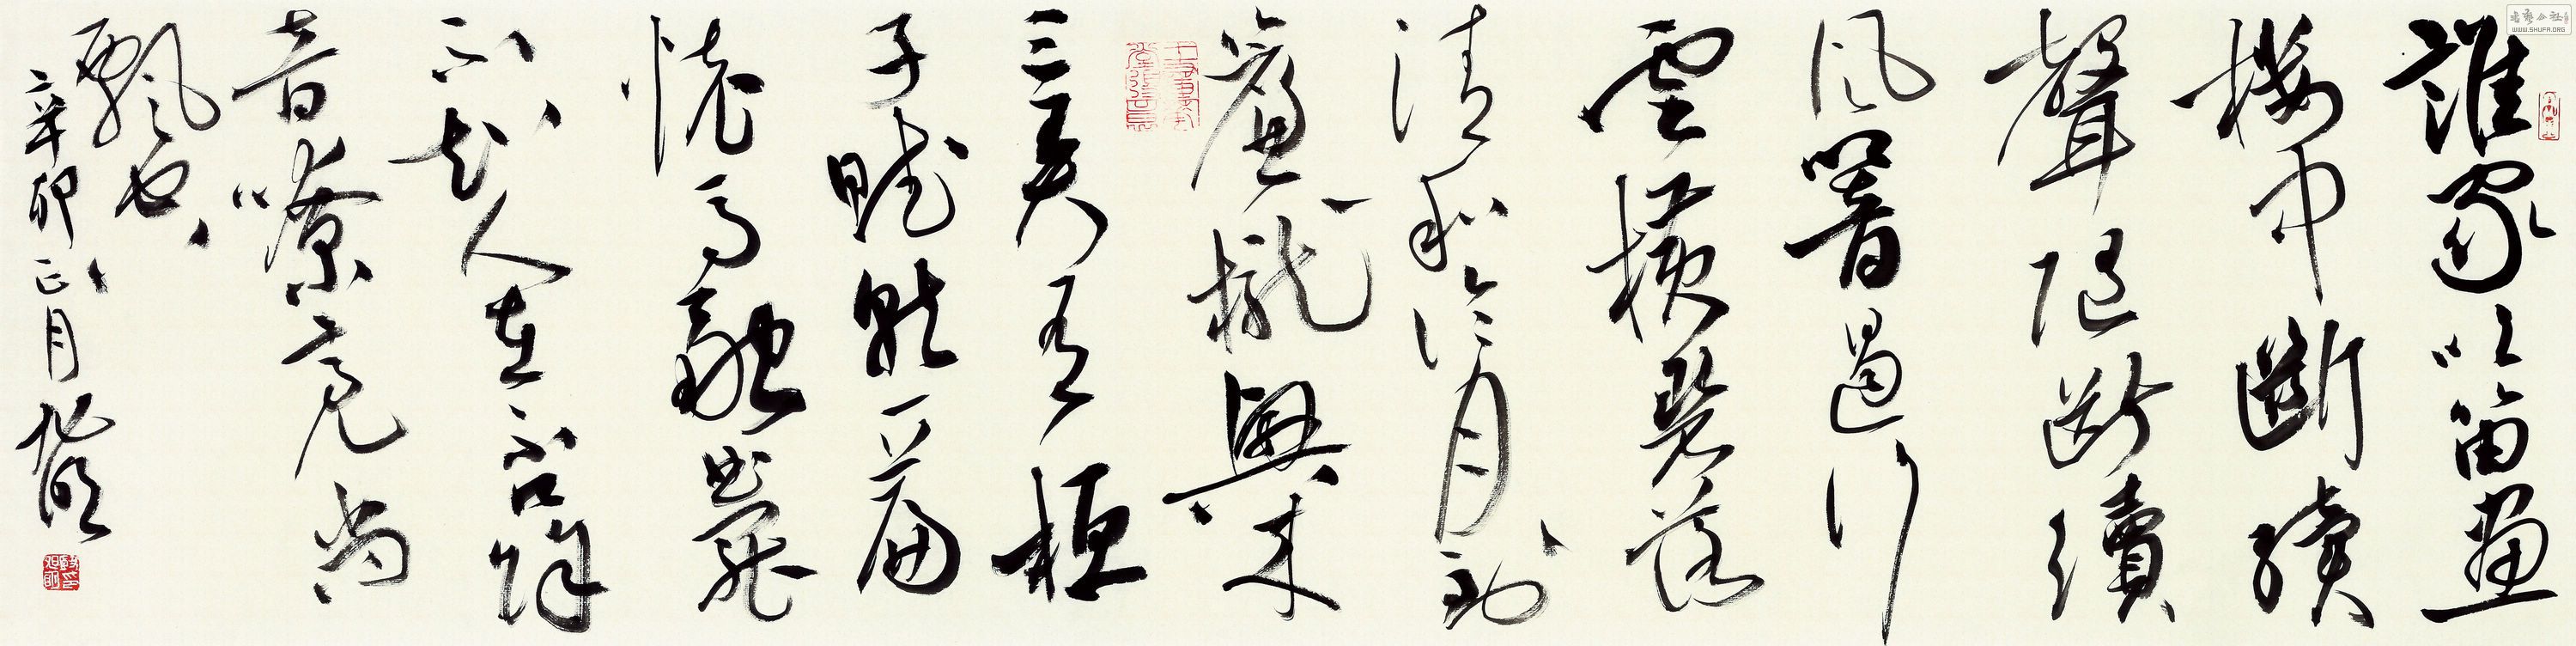 誰家吹笛畫
樓中斷續
聲隨斷續
風響遏行
雲橫碧落
清和冷月到
簾櫳興來
三弄有桓
子賦就一篇
懷馬融曲罷
不知人在否餘
音嘹亮尚
飄空
辛卯正月
WWW.SHUFA.ORG